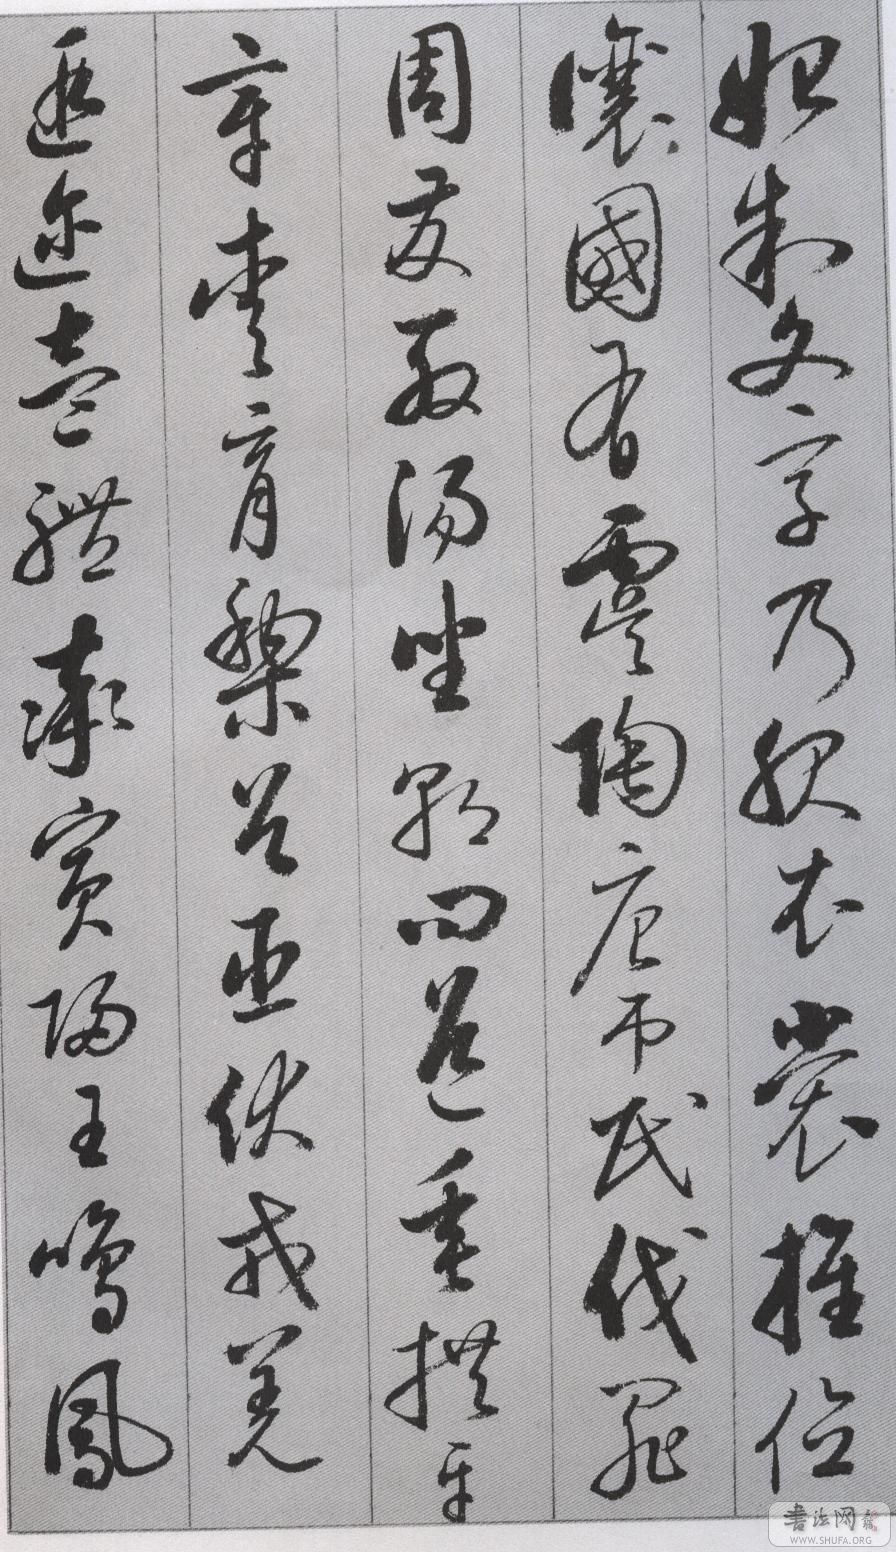 始制文字乃服衣裳推位
讓國有虞陶唐吊民伐罪
周發殷湯坐朝問道垂拱平
章愛育黎首臣伏戎羌
遐迩壹體率賓歸王鳴鳳
書法网
WWW.SHUFA.ORG